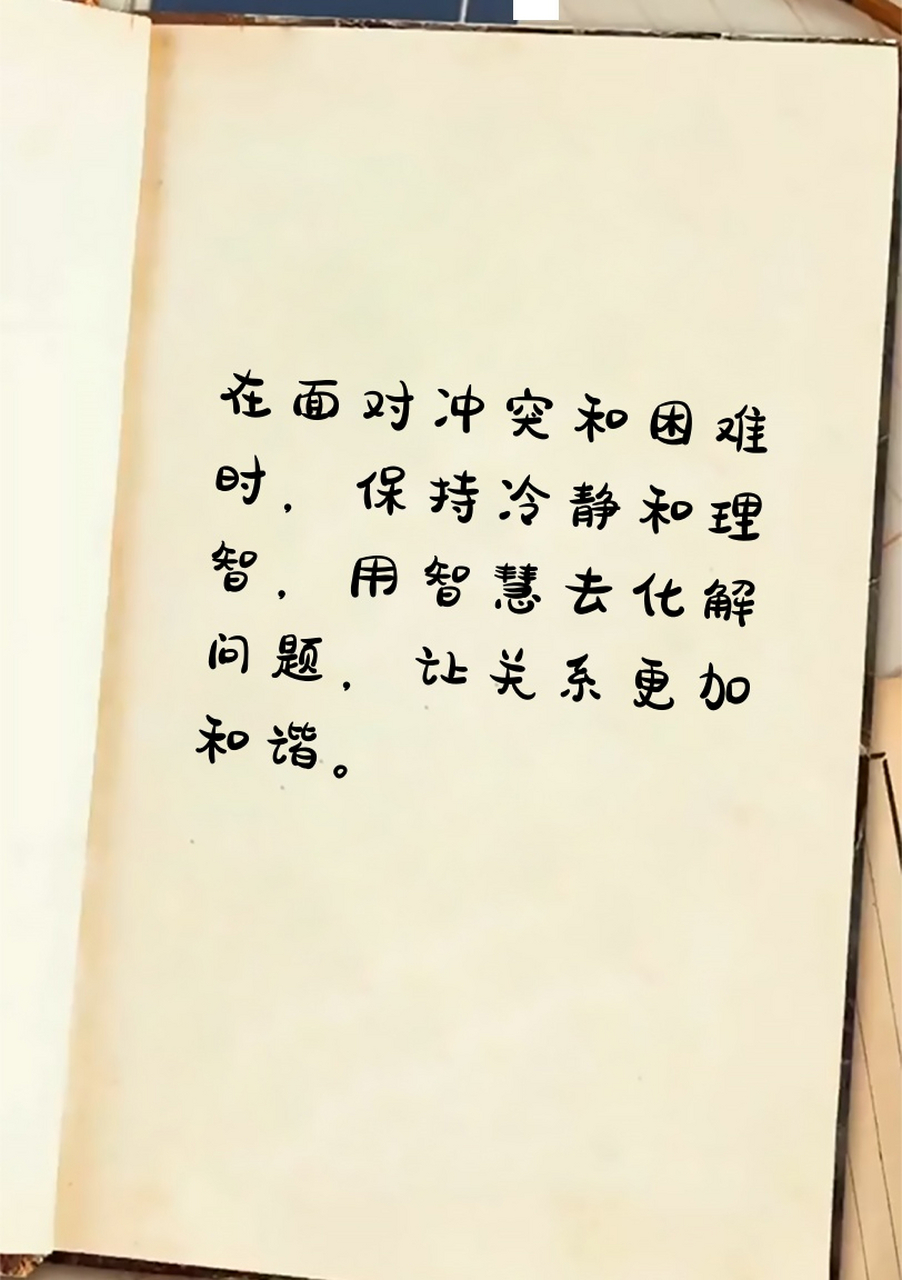 在面对冲突和困难
时，保持冷静和理
智，用智慧去化解
问题，让关系更加
和谐。